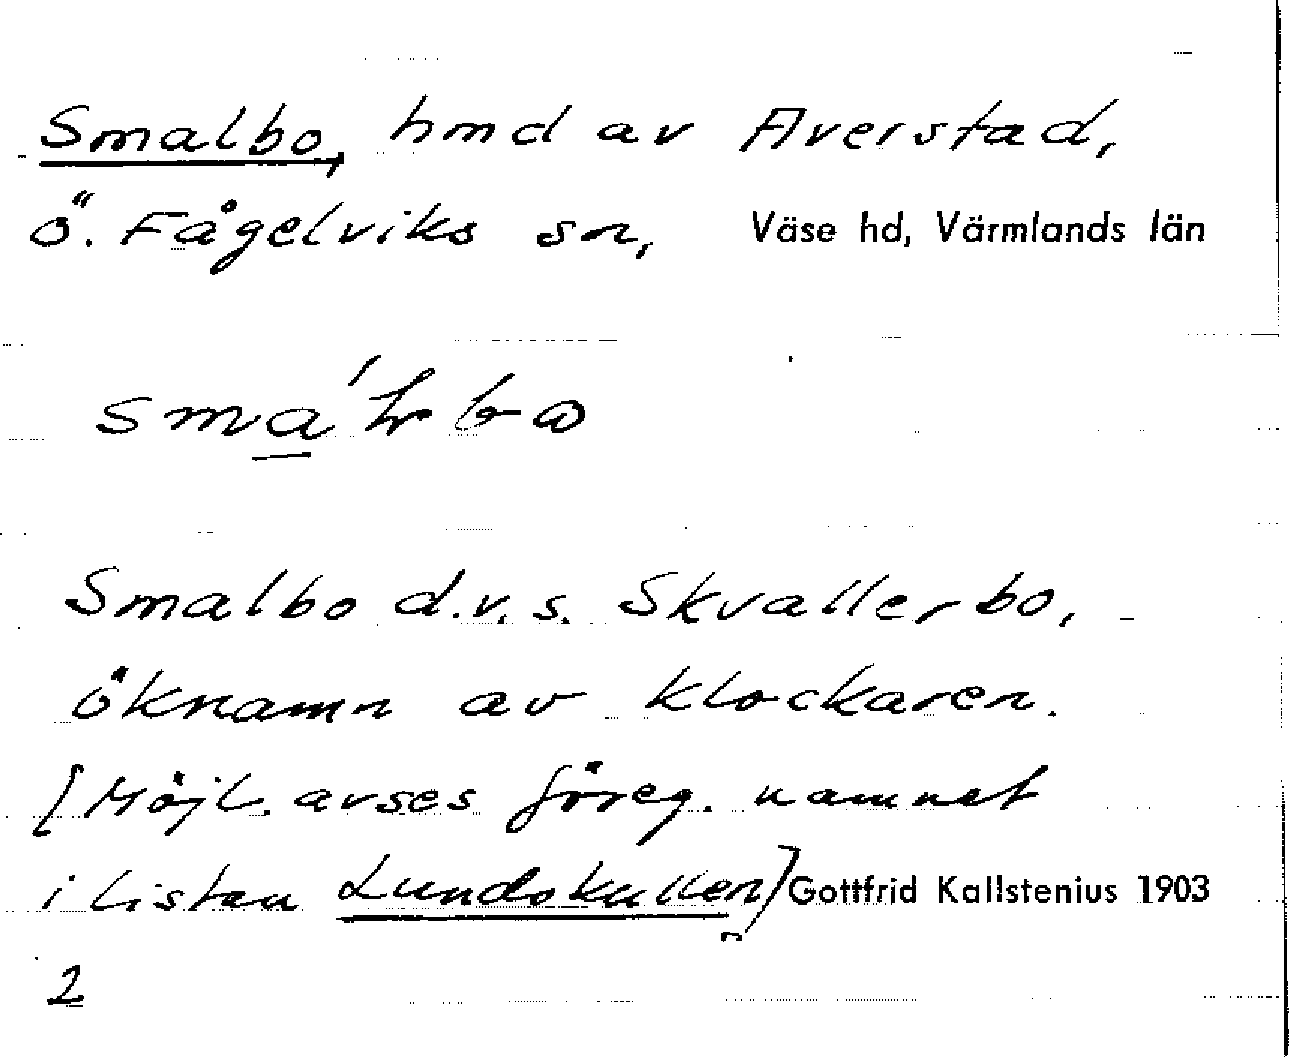 Smalbo, hmd av Averstad,
Ö. Fågelviks sn, Väse hd, Värmlands län
Smalbo d.v.s. Skvallerbo,
öknamn av klockaren.
[Möjl. avses föreg. namnet
i listan Lundskullen] Gottfrid Kallstenius 1903
2